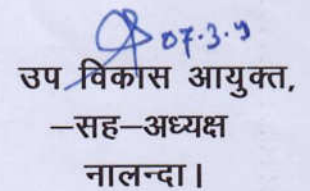 07.3.9
उप विकास आयुक्त,
–सह–अध्यक्ष
नालन्दा।